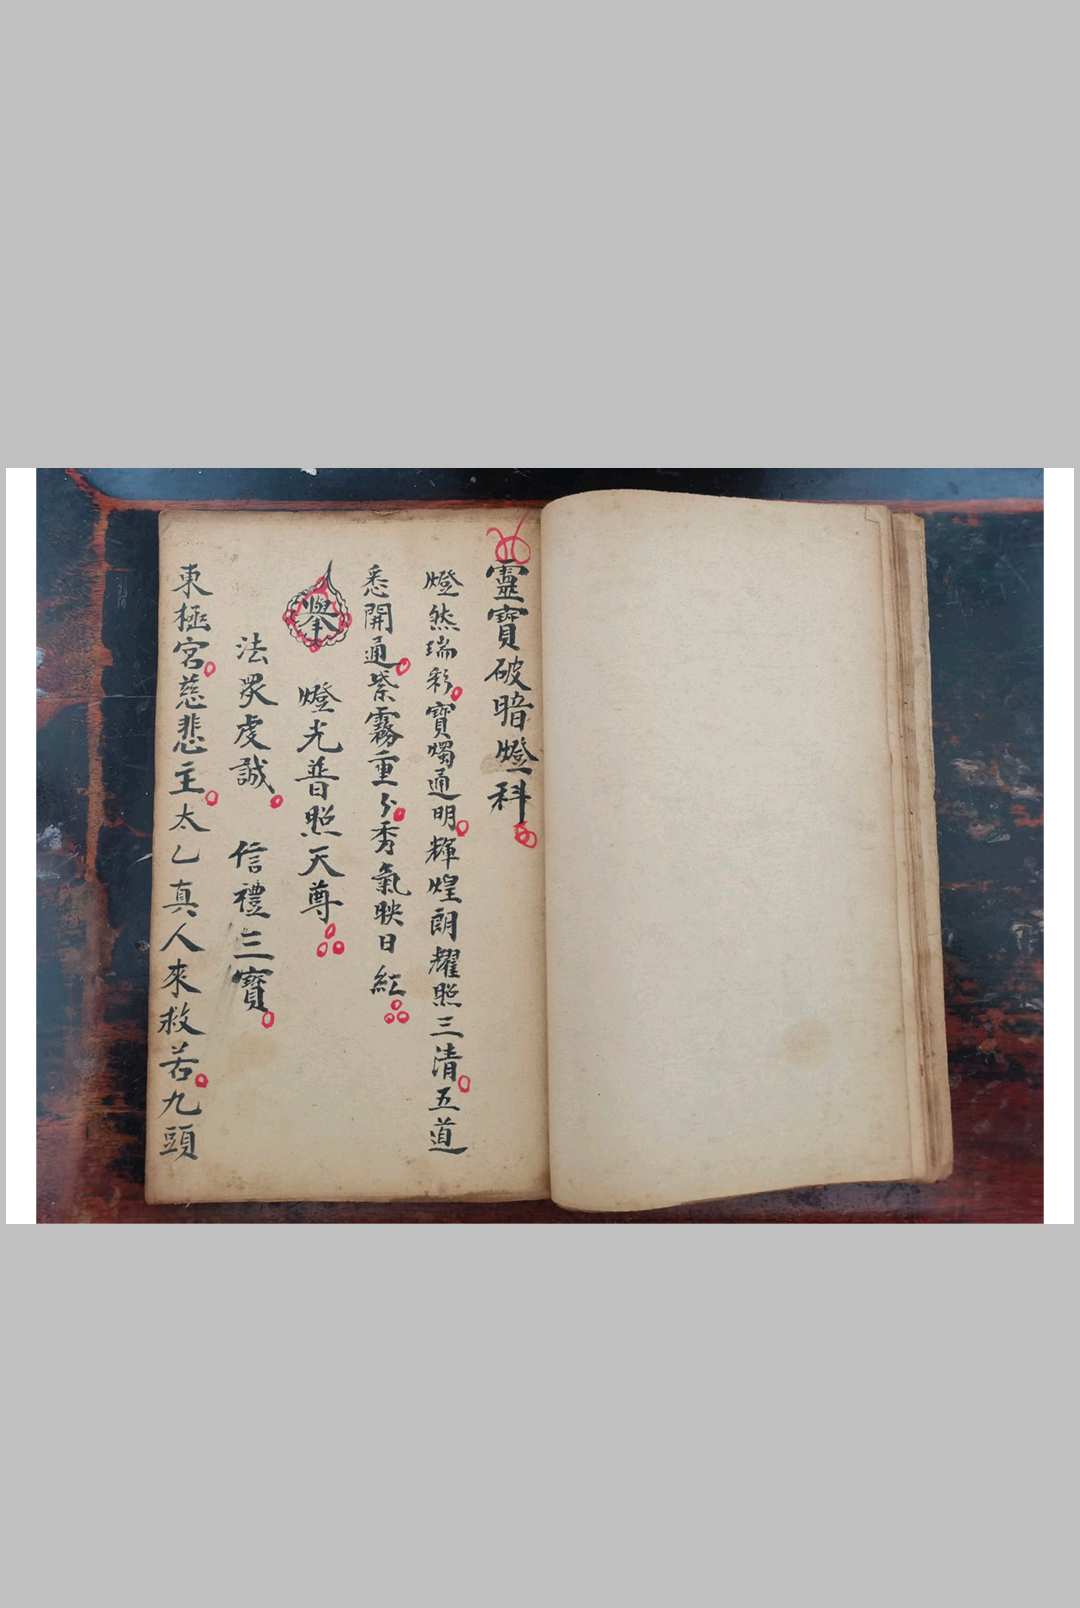 靈寶破暗燈科
燈然瑞彩寶燭通明輝煌朗耀照三清五道
悉開通紫霧重分秀氣映日紅
舉 燈光普照天尊
法衆虔誠 信禮三寶
東極宮慈悲主太乙真人來救苦九頭